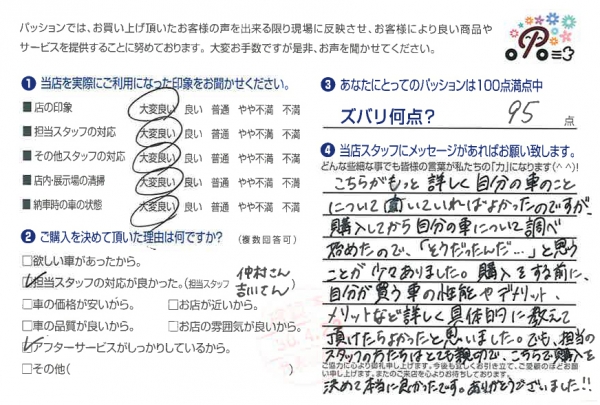 パッションでは、お買い上げ頂いたお客様の声を出来る限り現場に反映させ、お客様により良い商品や
サービスを提供することに努めております。大変お手数ですが是非、お声を聞かせてください。
❶ 当店を実際にご利用になった印象をお聞かせください。
■ 店の印象 大変良い 良い 普通 やや不満 不満
■ 担当スタッフの対応 大変良い 良い 普通 やや不満 不満
■ その他スタッフの対応 大変良い 良い 普通 やや不満 不満
■ 店内・展示場の清掃 大変良い 良い 普通 やや不満 不満
■ 納車時の車の状態 大変良い 良い 普通 やや不満 不満
❷ ご購入を決めて頂いた理由は何ですか？（複数回答可）
□欲しい車があったから。
☑担当スタッフの対応が良かった。(担当スタッフ 仲村さん
吉川さん )
□車の価格が安いから。 □お店が近いから。
□車の品質が良いから。 □お店の雰囲気が良いから。
☑アフターサービスがしっかりしているから。
□その他( )
❸ あなたにとってのパッションは100点満点中
ズバリ何点？ 95 点
❹ 当店スタッフにメッセージがあればお願い致します。
どんな些細な事でも皆様の言葉が私たちの「力」になります(＾＾)!
こちらがもっと詳しく自分の車のこと
について聞いていればよかったのですが、
購入してから自分の車について調べ
始めたので、「そうだったんだ…」と思う
ことが少々ありました。購入をする前に、
自分が買う車の性能やデメリット、
メリットなど詳しく具体的に教えて
頂けたらよかったと思いました。でも、担当の
スタッフの方たちはとても親切で、こちらで購入を
ご協力に心より御礼申し上げます。今後も宜しくお引き立て、ご愛顧のほどお願
い申し上げます。またのご来店を心よりお待ちしております。
決めて本当に良かったです。ありがとうございました!!